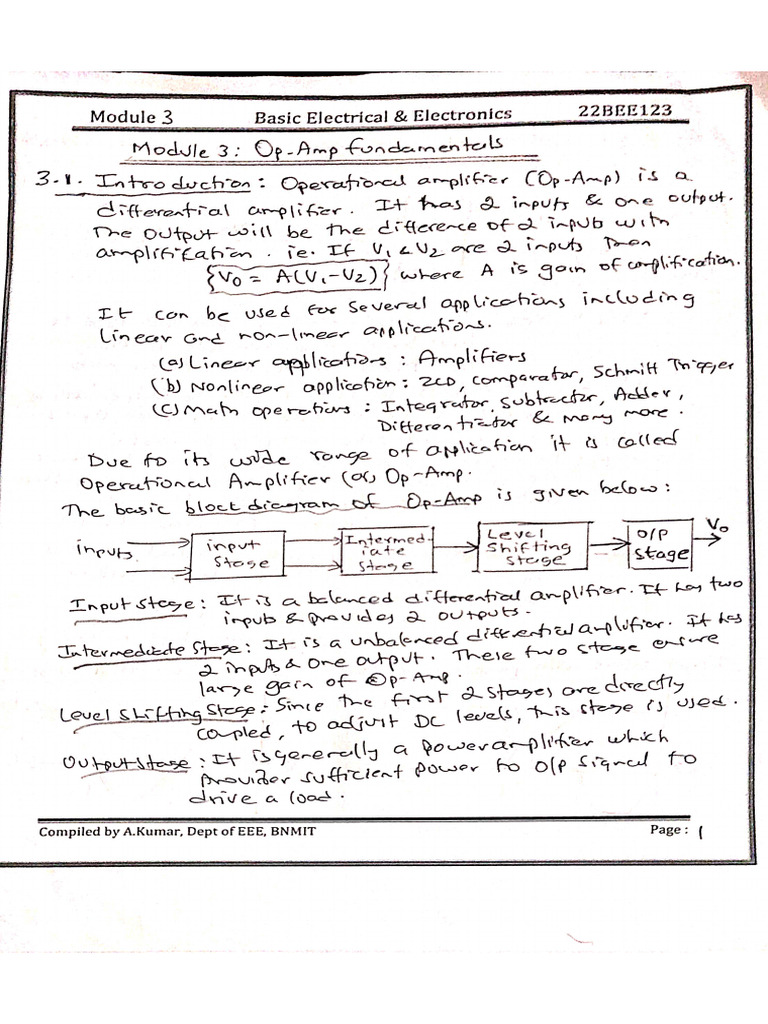 Module 3 Basic Electrical & Electronics 22BEE123
Module 3: Op-Amp fundamentals
3.1. Introduction: Operational amplifier (Op-Amp) is a
differential amplifier. It has 2 inputs & one output.
The output will be the difference of 2 inputs with
amplification. ie. If V1 & V2 are 2 inputs Then
{V0 = A(V1-V2)} where A is gain of amplification.
It can be used for several applications including
linear and non-linear applications.
(a) Linear applications : Amplifiers
(b) Nonlinear application : ZCD, comparator, Schmitt Trigger
(c) Math operations : Integrator, Subtractor, Adder,
Differentiator & many more.
Due to its wide range of application it is called
Operational Amplifier (or) Op-Amp.
The basic block diagram of Op-Amp is given below:
inputs
input
Stage
Intermed-
iate
Stage
Level
Shifting
Stage
O/P
Stage
V0
Input Stage : It is a balanced differential amplifier. It has two
inputs & provides 2 outputs.
Intermediate Stage : It is a unbalanced differential amplifier. It has
2 inputs & one output. These two stage ensure
large gain of Op-Amp.
Level Shifting Stage : Since the first 2 stages are directly
coupled, to adjust DC levels, this stage is used.
Output Stage : It is generally a power amplifier which
provides sufficient power to O/P signal to
drive a load.
Compiled by A.Kumar, Dept of EEE, BNMIT Page : 1